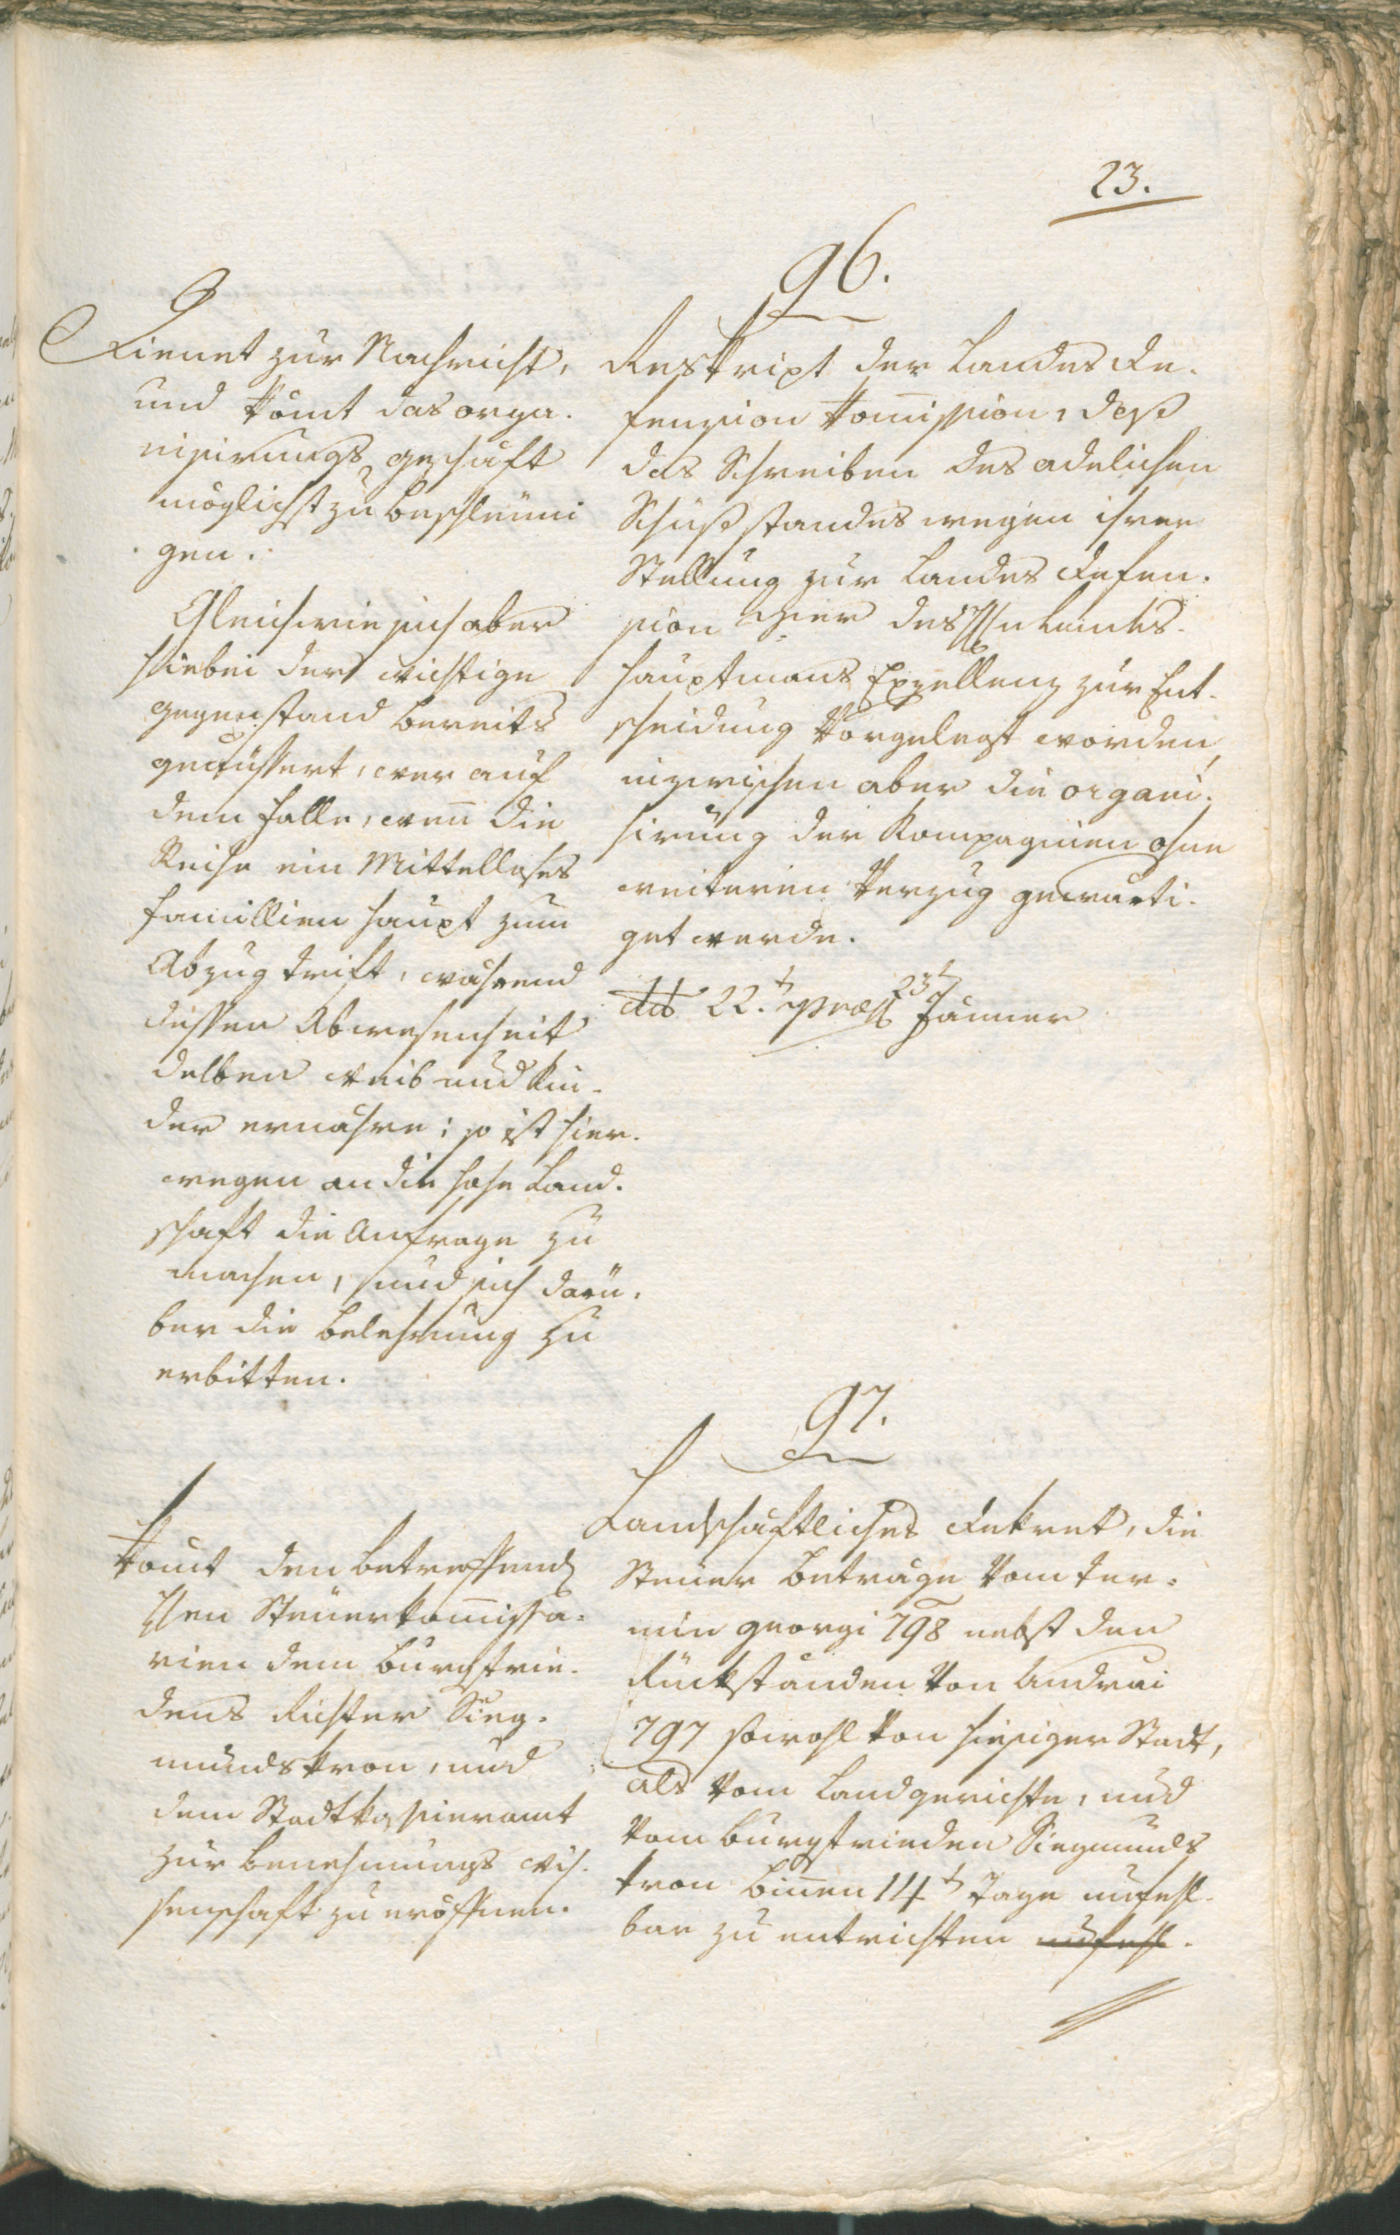 23.
96.
Dienet zur Nachricht,
und kömt das orga-
nisirungs geschäft
möglichst zu beschleuni
gen.
Gleichwie sich aber
hiebei der wichtige
gegenstand bereits
geäussert, wer auf
dem falle, wenn die
Reihe ein Mittelloses
familien haupt zum
Abzug trift, während
dessen Abwesenheit
delben Weib und Kin-
der ernähre; so ist hier-
wegen an die hohe Land-
schaft die Anfrage zu
machen, und sich darü-
ber die belehrung zu
erbitten.
Reskript der Landes De-
fension Kommission, daß
das Schreiben des adelichen
Schuß standes wegen ihrer
Stellung zur Landes Defen-
sion hier des Hn Landes-
hauptmans Exzellenz zur Ent-
scheidung Vorgelegt worden,
inzwischen aber die organi-
sirung der Kompagnien ohne
weiteren Verzug gewärti-
get werde.
dto 22.t präs 23t Jänner
97.
Kömt den betreffend
Hen Steuerkommissa-
rien dem burgfrie-
dens Richter Sieg-
mundskron, und
dem Stadtkassieramt
zur benehmungs wis-
senschaft zu eröffnen.
Landschaftliches Dekret, die
Steuer beträge vom ter-
min georgi 798 nebst den
Rückständen von Andräi
797 sowohl von hiesiger Stadt,
als vom Landgerichte, und
vom burgfrieden Siegmunds
kron binnen 14t Tage unfehl-
bar zu entrichten unfehl-